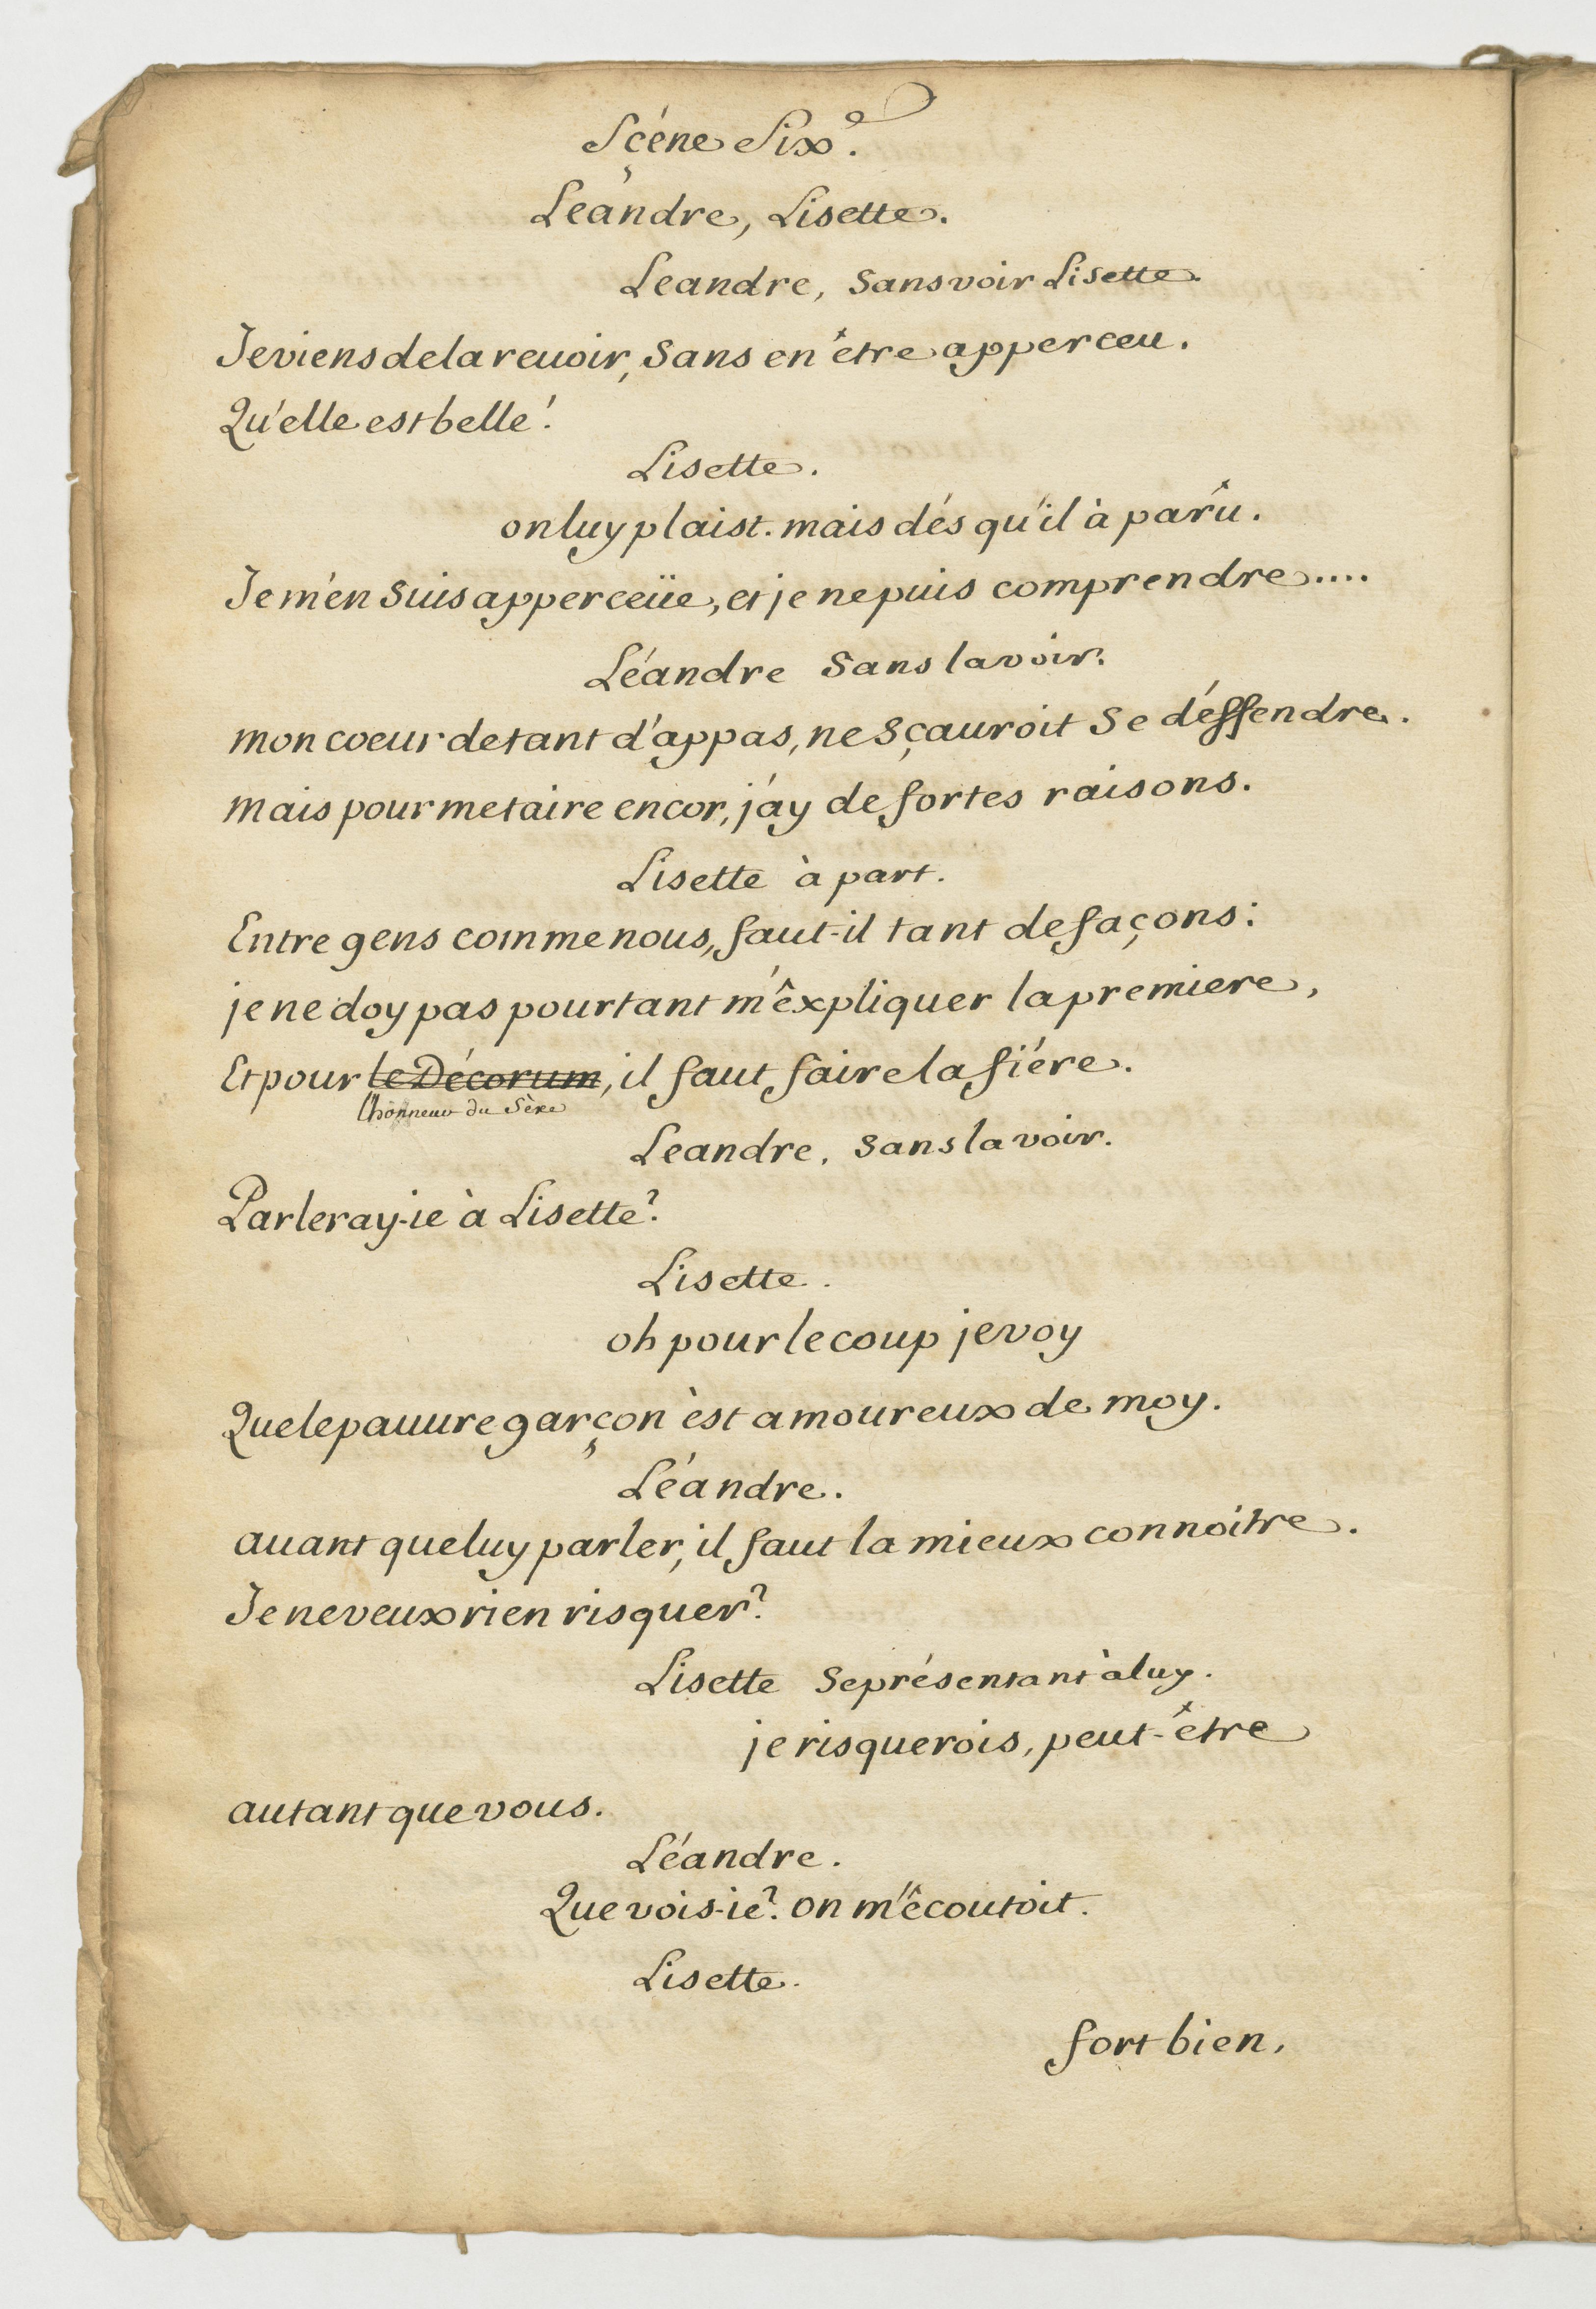 Sçéne Six.e
Leandre, Lisette.
Leandre, Sans voir Lisette.
Je viens de la reuoir, Sans en être apperceu.
Qu'elle est belle!
Lisette.
on luy plaist. mais dés qu'il à parû.
Je m'en Suis apperceüe, et je ne puis comprendre....
Léandre Sans la voir.
mon coeur de tant d'appas, ne Sçauroit Se déffendre.
Mais pour me taire encor, j'ay de fortes raisons.
Lisette à part.
Entre gens comme nous, faut-il tant de façons:
je ne doy pas pourtant m'êxpliquer la premiere,
Et pour le Décorum, il faut faire la fiére.
l'honneur du Sèxe
Leandre, Sans la voir.
Parleray-ie à Lisette?
Lisette.
oh pour le coup je voy
Que le pauure garçon èst amoureux de moy.
Léandre.
auant que luy parler, il faut la mieux connoitre.
Je ne veux rien risquer?
Lisette Se présentant à luy.
je risquerois, peut-être
autant que vous.
Léandre.
Que vois-ie? on m'êcoutoit.
Lisette.
fort bien,